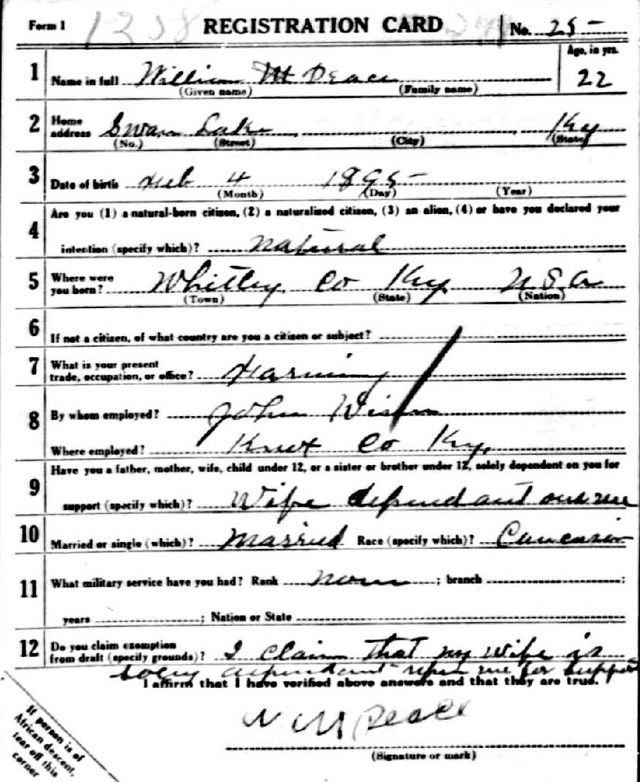 Form 1 1338 REGISTRATION CARD No. 25-
Age, in yrs.
1 Name in full William M Peace 22
(Given name) (Family name)
2 Home address Swan Lake Ky
(No.) (Street) (City) (State)
3 Date of birth Feb 4 1895
(Month) (Day) (Year)
4 Are you (1) a natural-born citizen, (2) a naturalized citizen, (3) an alien, (4) or have you declared your
intention (specify which)? Natural
5 Where were you born? Whitley Co Ky. U.S.A
(Town) (State) (Nation)
6 If not a citizen, of what country are you a citizen or subject?
7 What is your present trade, occupation, or office? Farming
8 By whom employed? John
Where employed? Knox Co Ky.
9 Have you a father, mother, wife, child under 12, or a sister or brother under 12, solely dependent on you for
support (specify which)? Wife dependant me
10 Married or single (which)? Married Race (specify which)? Caucasian
11 What military service have you had? Rank None ; branch ;
years ; Nation or State
12 Do you claim exemption from draft (specify grounds)? I claim that my wife is
dependant me for support
I affirm that I have verified above answers and that they are true.
W M Peace
(Signature or mark)
If person is of
African descent,
tear off this
corner